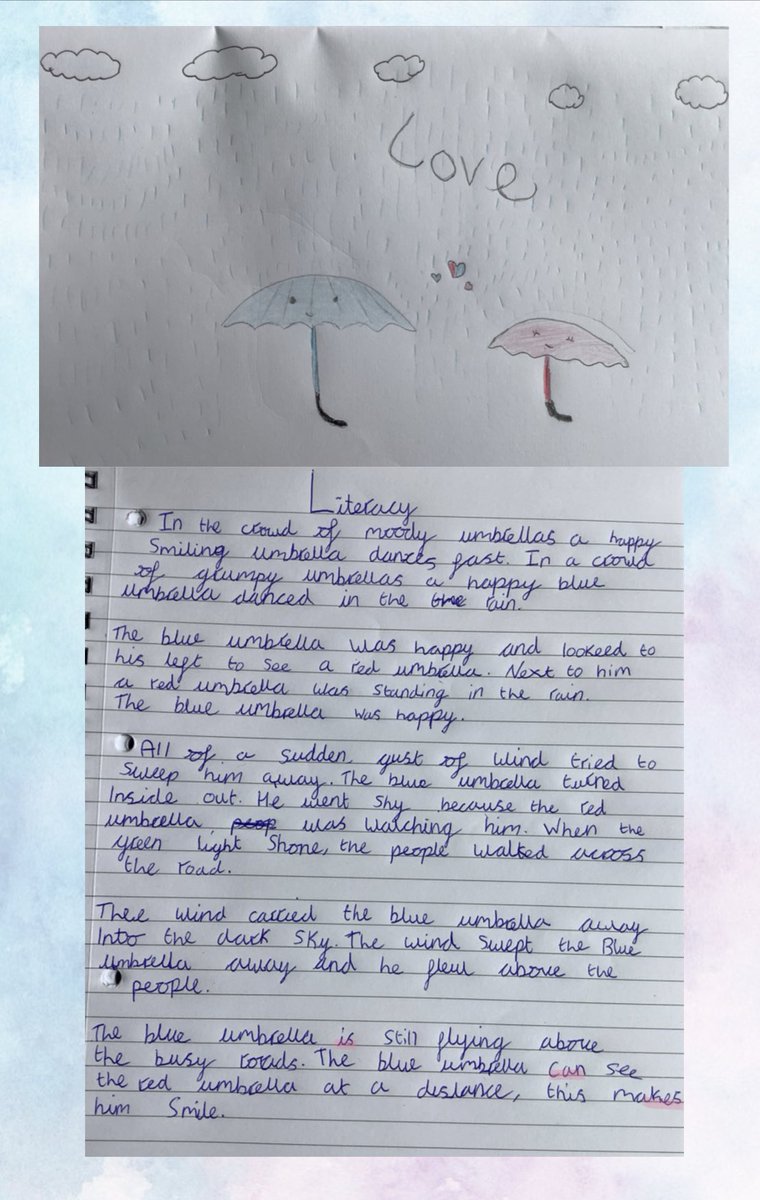 Love
Literacy
In the crowd of moody umbrellas a happy
Smiling umbrella dances fast. In a crowd
of grumpy umbrellas a happy blue
umbrella danced in the the rain.
The blue umbrella was happy and lookeed to
his left to see a red umbrella. Next to him
a red umbrella was standing in the rain.
The blue umbrella was happy.
All of a sudden gust of wind tried to
sweep him away. The blue umbrella turned
Inside out. He went shy because the red
umbrella was watching him. When the
green light Shone, the people walked across
the road.
Thee wind carried the blue umbrella away
Into the dark sky. The wind swept the Blue
umbrella away and he flew above the
people.
The blue umbrella is still flying above
the busy roads. The blue umbrella can see
the red umbrella at a distance, this makes
him Smile.